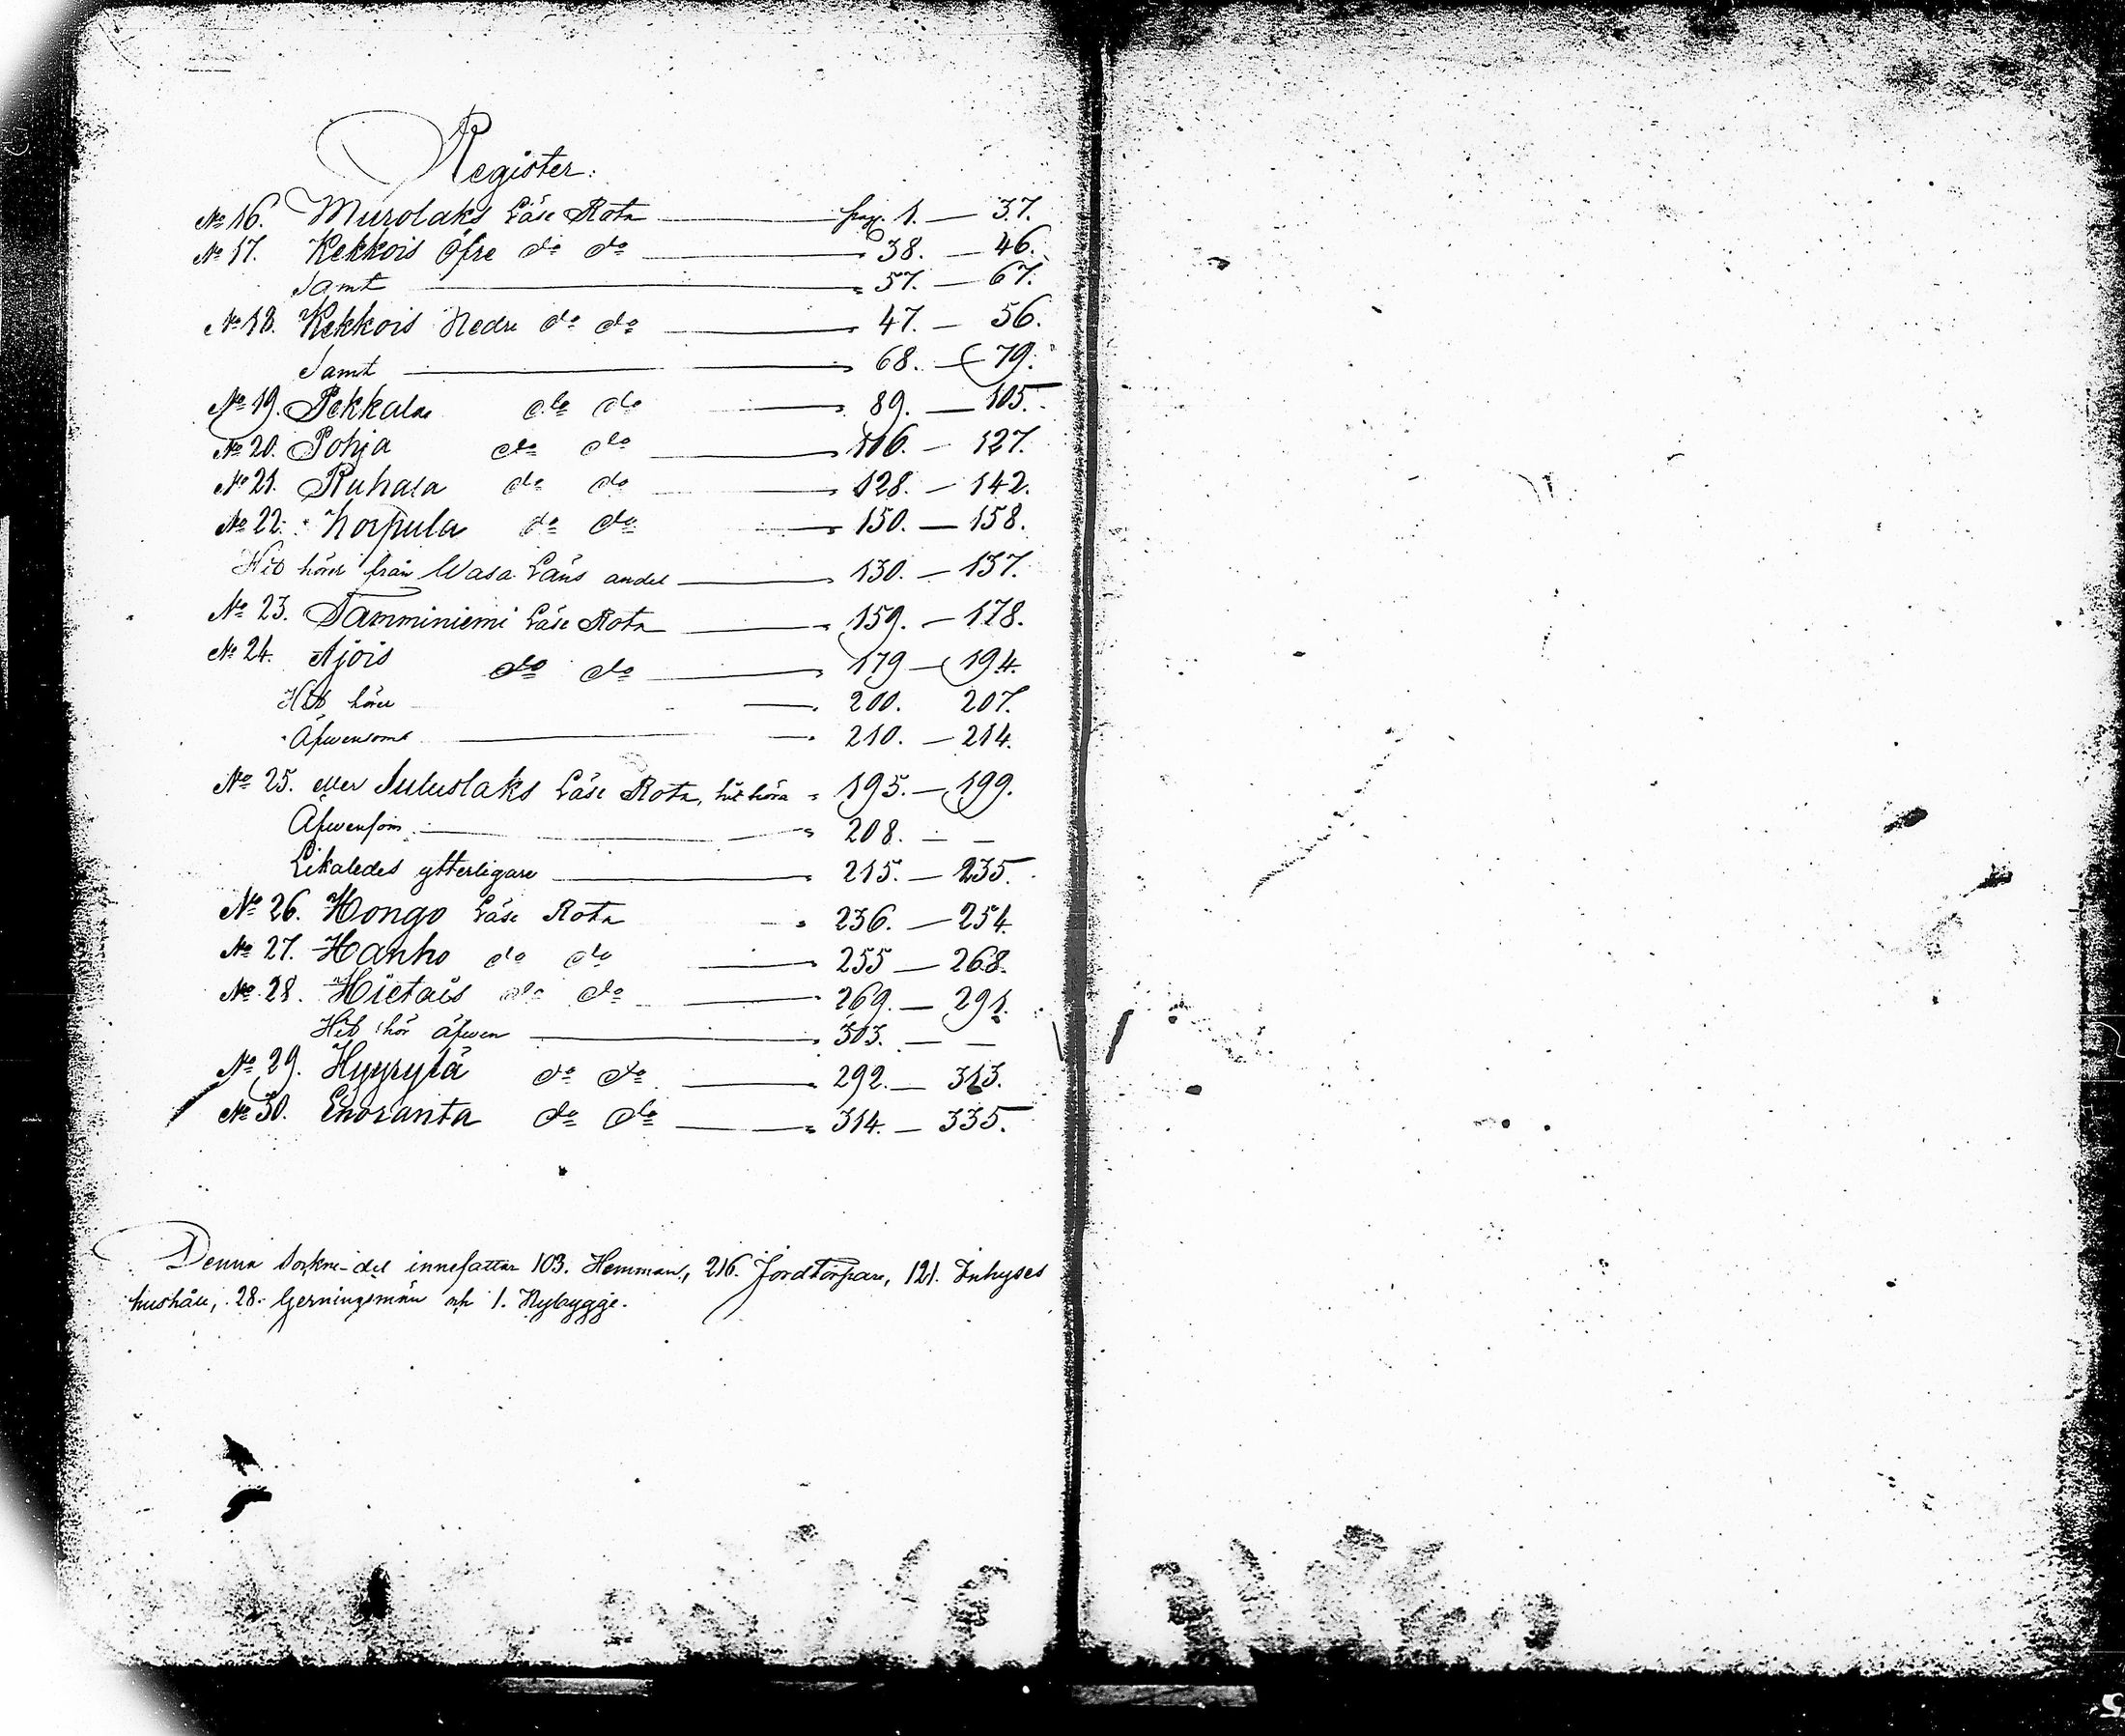 Register.
No 16. Murolaks Läse Rota — pag. 1. — 37.
No 17. Kekkois Öfre do do — " 38. — 46.
Samt — " 57. — 67.
No 18. Kekkois Nedre do do — " 47. — 56.
Samt — " 68. — 79.
No 19. Pekkala do do — " 89. — 105.
No 20. Pohja do do — " 106. — 127.
No 21. Ruhala do do — " 128. — 142.
No 22. Korpula do do — " 150. — 158.
Hit hörer från Wasa Läns andel — " 130. — 137.
No 23. Tamminiemi Läse Rota — " 159. — 178.
No 24. Ajois do do — " 179 — 194.
Hit hörer — " 200. 207.
Äfwensom — " 210. — 214.
No 25. eller Suluslaks Läse Rota, hit höra " 195. — 199.
Äfwensom — " 208. — —
Likaledes ytterligare — " 215. — 235.
No 26. Hongo Läse Rota " 236. — 254.
No 27. Hanho do do — " 255 — 268.
No 28. Hietais do do — " 269. — 291.
Hit hör äfwen — " 303. — —
No 29. Hyyrylä do do — " 292. — 313.
No 30. Enoranta do do — " 314. — 335.
Denna Sockne-del innefattar 103. Hemman, 216. Jordtorpare, 121. Inhyses
hushåll, 28. Gerningsmän och 1. Nybygge.